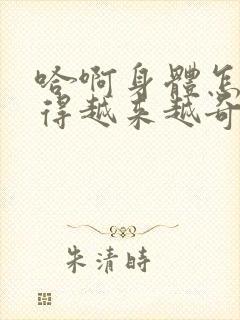 哈啊身體怎
得越来越奇
朱清時